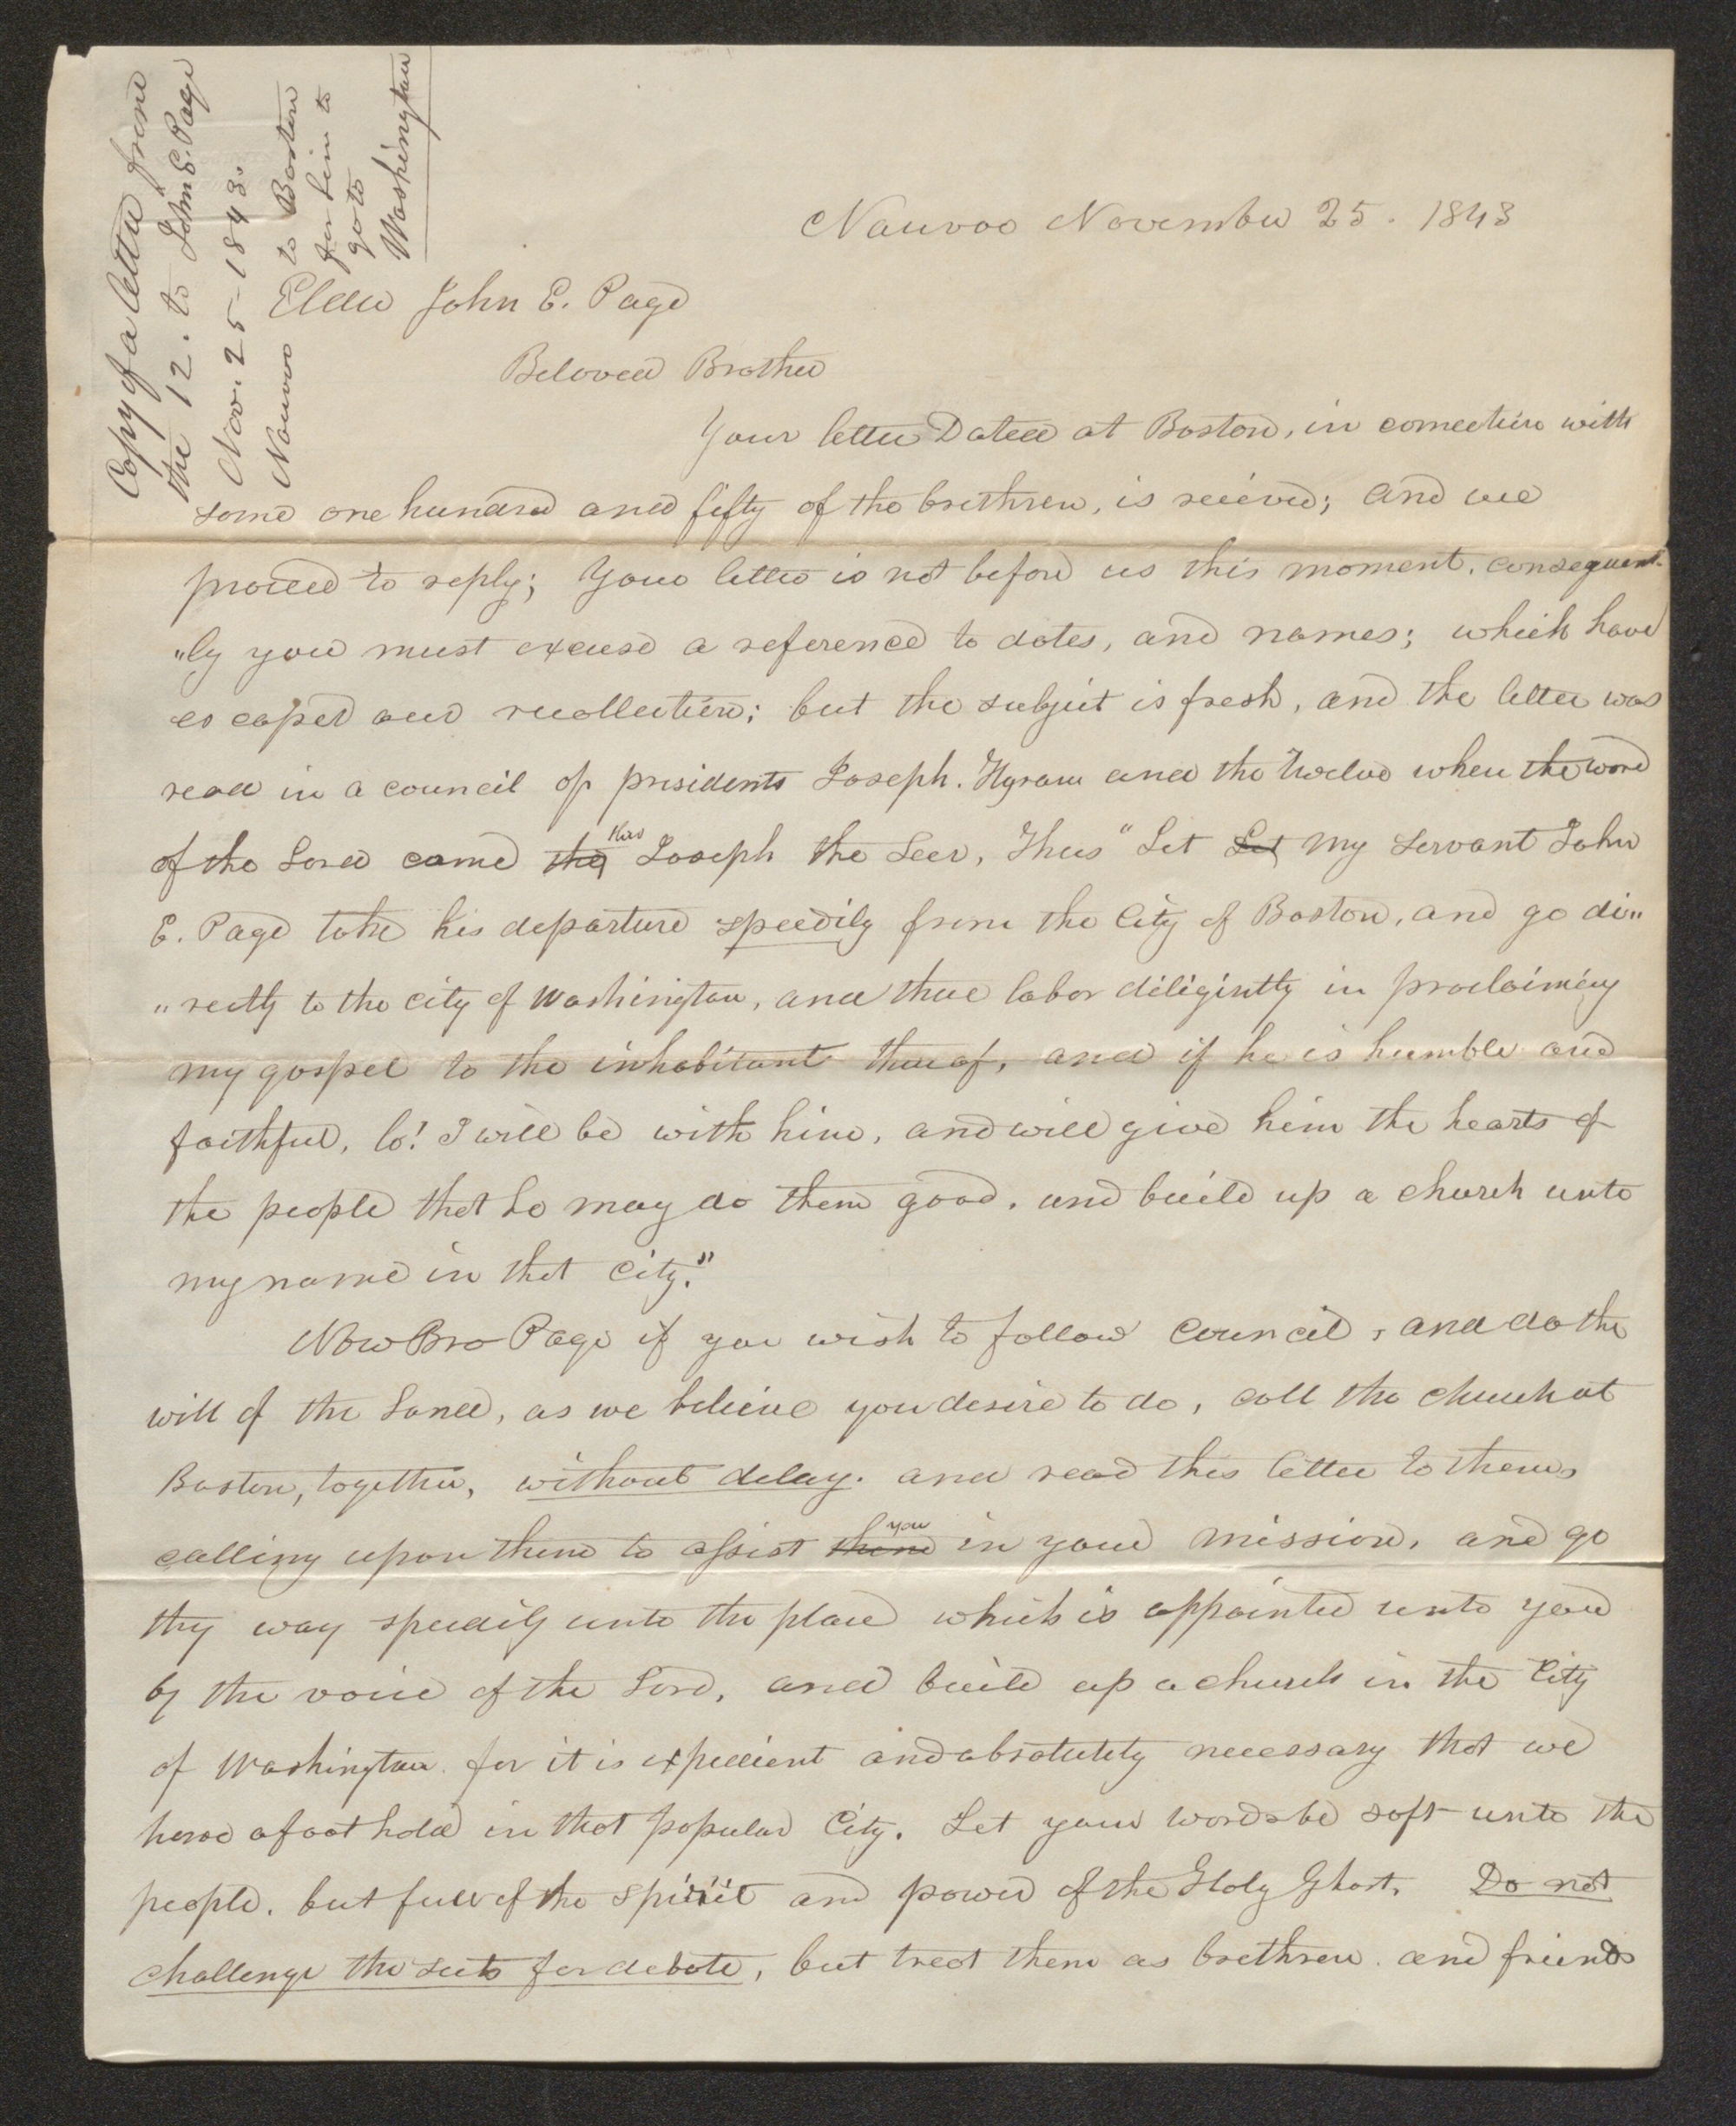 Copy of a letter from
the 12. to John E. Page
Nov. 25- 1843.
Nauvoo to Boston
for him to
go to
Washington
Nauvoo November 25. 1843
Elder John E. Page
Beloved Brother
Your letter Dated at Boston, in connection with
some one hundred and fifty of the brethren, is recieved; and we
proceed to reply; Your letter is not before us this moment, consequent-
"ly you must excuse a reference to dates, and names; which have
escaped our recollection; but the subject is fresh, and the letter was
read in a council of presidents Joseph. Hyram and the Twelve when the word
of the Lord came thro Joseph the Seer, Thus "Let Let my Servant John
E. Page take his departure speedily from the City of Boston, and go di"
"rectly to the city of Washington, and there labor diligintly in proclaiming
my gospel to the inhabitants thereof, and if he is humble and
faithful, lo! I will be with him, and will give him the hearts of
the people that he may do them good, and build up a church unto
my name in that City."
Now Bro Page if you wish to follow Council, and do the
will of the Lord, as we believe you desire to do, call the church at
Boston, together, without delay. and read this letter to them,
calling upon them to assist them you in your mission, and go
thy way speedily unto the place which is appointed unto you
by the voice of the Lord, and build up a church in the City
of Washington. for it is expedient and absolutely necessary that we
have a foot hold in that popular City. Let your words be soft unto the
people. but full of the spiriit and power of the Holy Ghost. Do not
challenge the sects for debate, but treat them as brethren. and friends